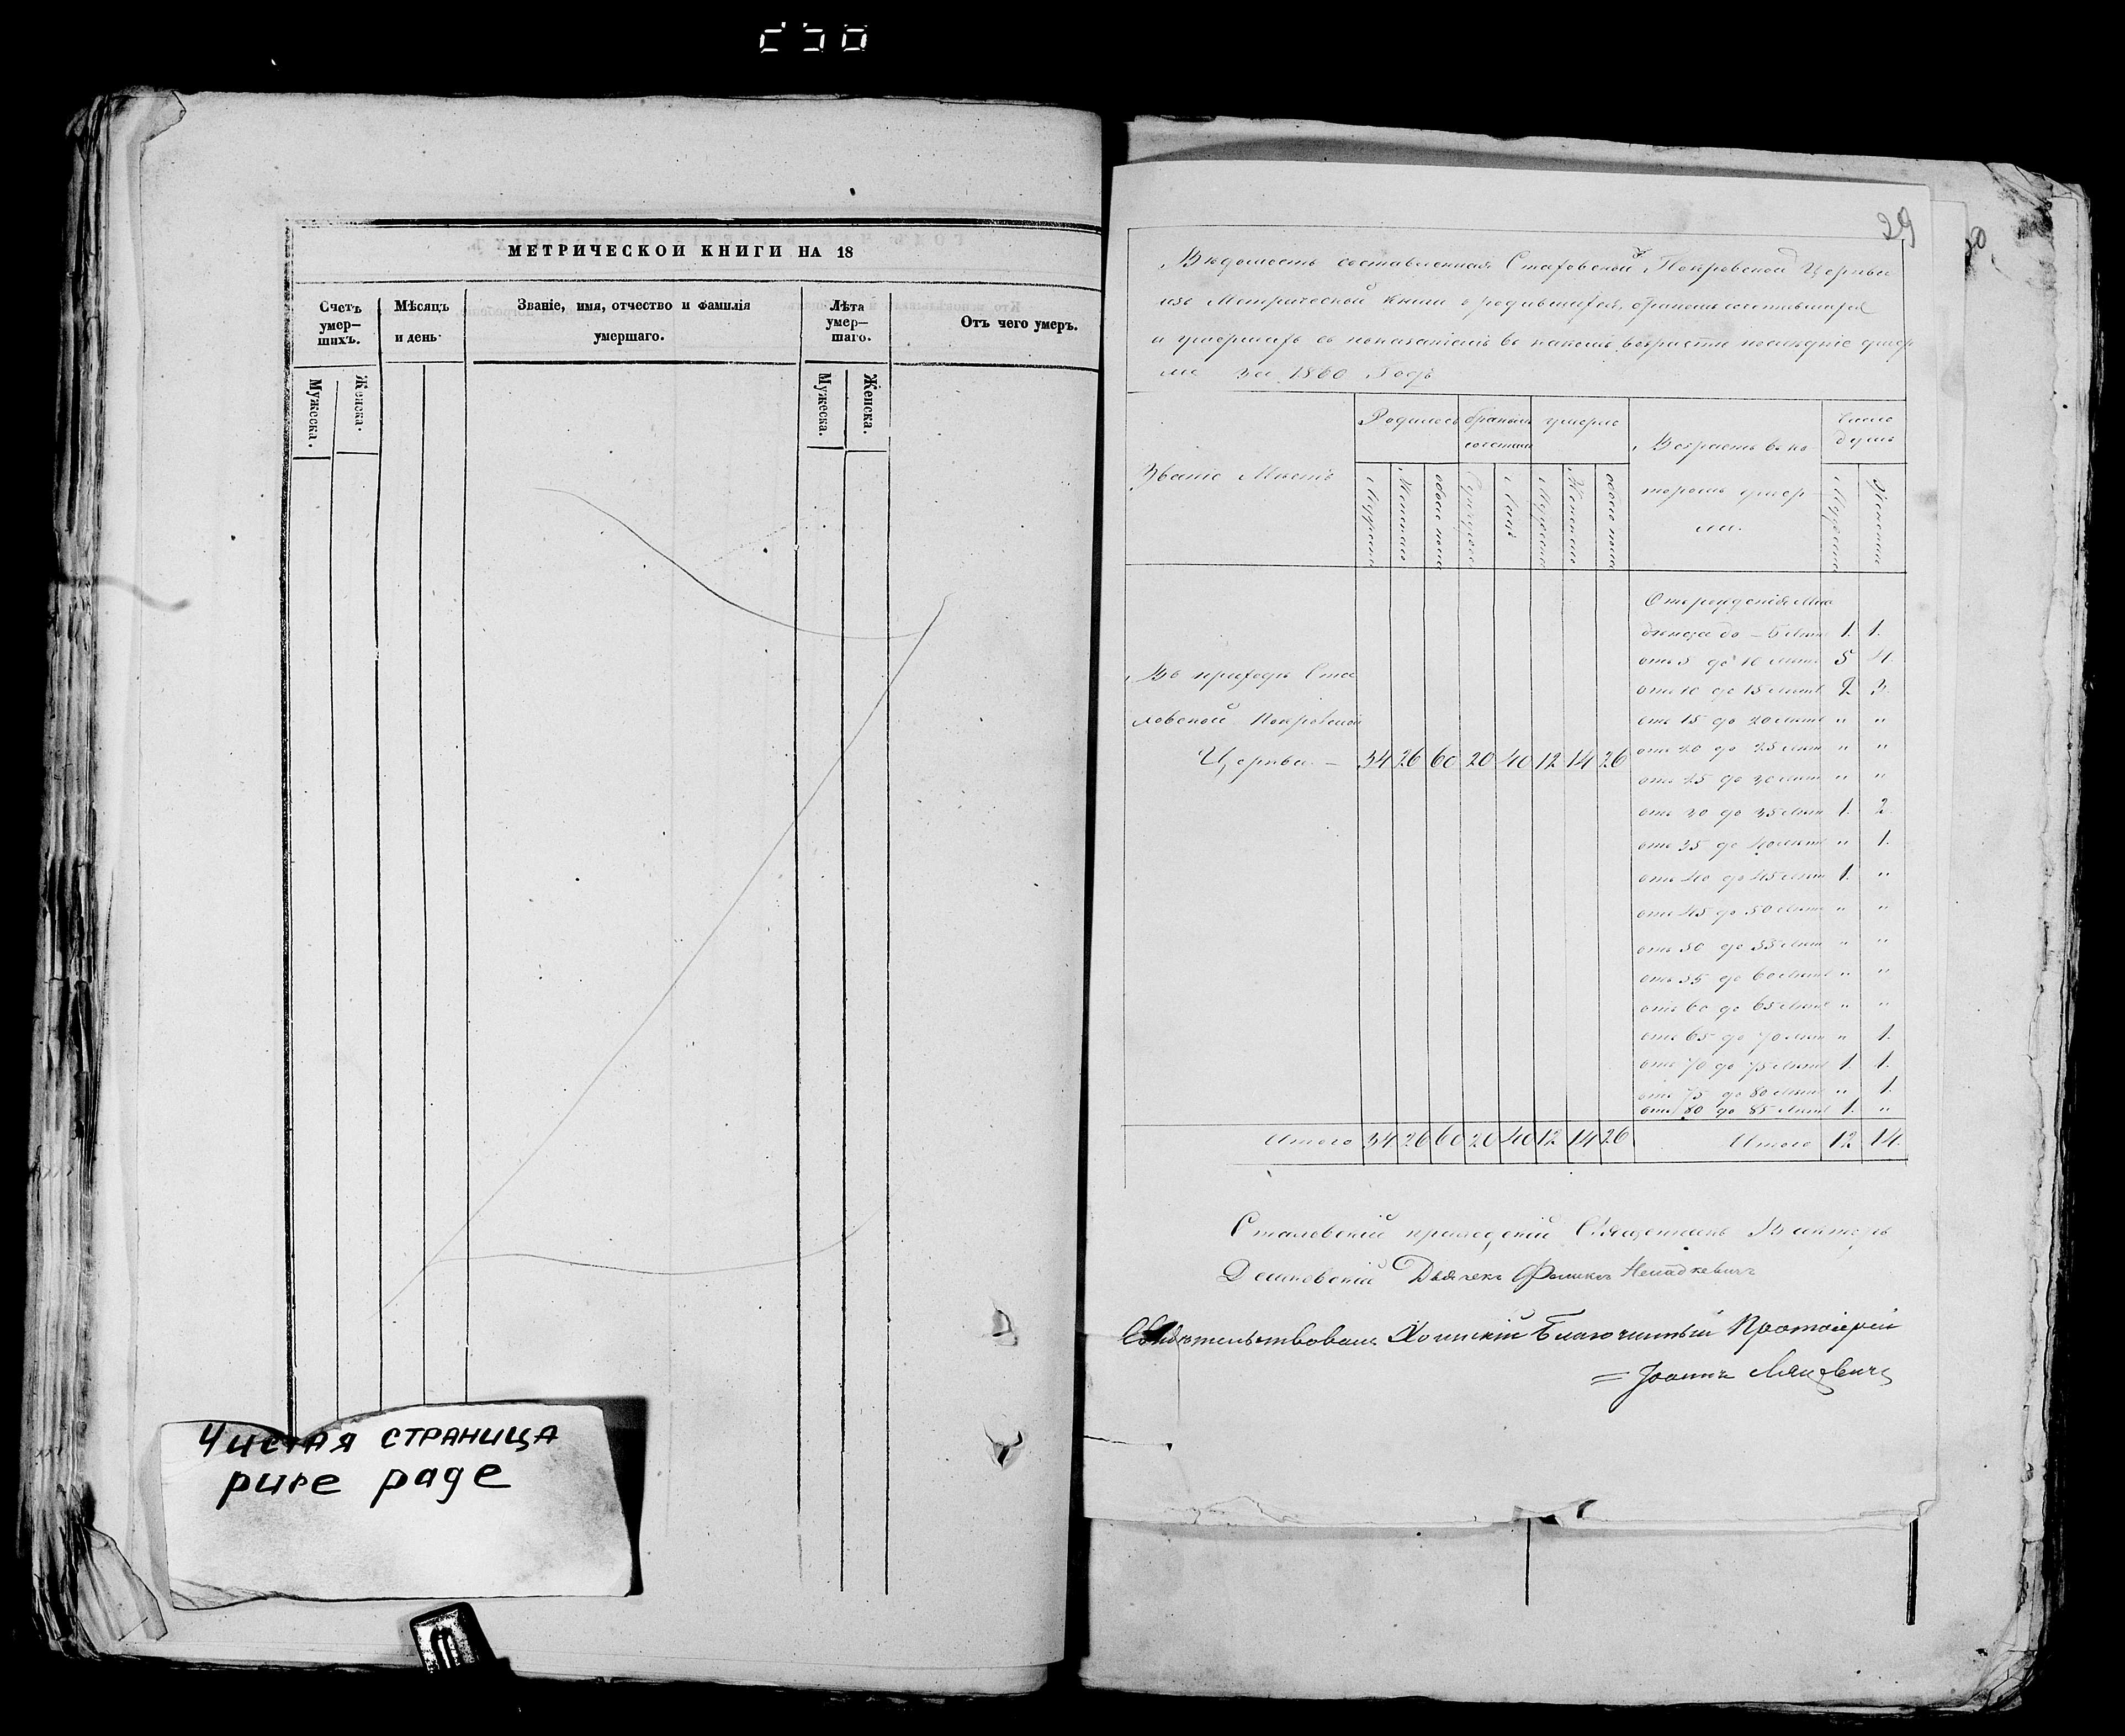 МЕТРИЧЕСКОЙ КНИГИ НА 18
Счетъ умер— шихъ.
Мѣсяцъ и день
Званіе, имя, отчество и фамилія умершаго.
Лѣта умер— шаго.
Отъ чего умеръ.
Мужеска.
Женска.
Мужеска.
Женска.
Чистая страница
pure page
29
Вѣдомость составленная Покровской Церкви
изъ Метрической книги о родившихся, бракомъ сочетавшихся
и умершихъ съ показаніемъ въ какомъ возрастѣ послѣдніе умер
ли за 1860 Годъ
Званіе Мѣстъ
Родилось
бракомъ
умерло
Возрастъ въ ко
торомъ умер
ли.
Число душъ
Мужеска
Женска
обоего пола
Лицъ
Мужеска
Женска
обоего пола
Мужеска
Женска
Отъ рожденія Мла
денца до — 5 лѣтъ 1. 1.
отъ 5 до 10 лѣтъ 5 4.
отъ 10 до 15 лѣтъ 2 3.
отъ 15 до 20 лѣтъ " "
отъ 20 до 25 лѣтъ " "
отъ 25 до 30 лѣтъ " "
отъ 30 до 35 лѣтъ 1. 2.
отъ 35 до 40 лѣтъ " 1.
отъ 40 до 45 лѣтъ 1. "
отъ 45 до 50 лѣтъ " "
отъ 50 до 55 лѣтъ " "
отъ 55 до 60 лѣтъ " "
отъ 60 до 65 лѣтъ " "
отъ 65 до 70 лѣтъ " 1.
отъ 70 до 75 лѣтъ 1. 1.
отъ 75 до 80 лѣтъ " 1.
отъ 80 до 85 лѣтъ 1. "
Въ приходѣ Ста
ловской Покровской
Церкви — 34 26 60 20 40 12 14 26
Итого 34 26 60 20 40 12 14 26 Итого 12 14.
Сталовскій приходскій Священникъ Викторъ
Дьячекъ
Свидѣтельствовалъ Благочинный Протоіерей
= Іоаннъ